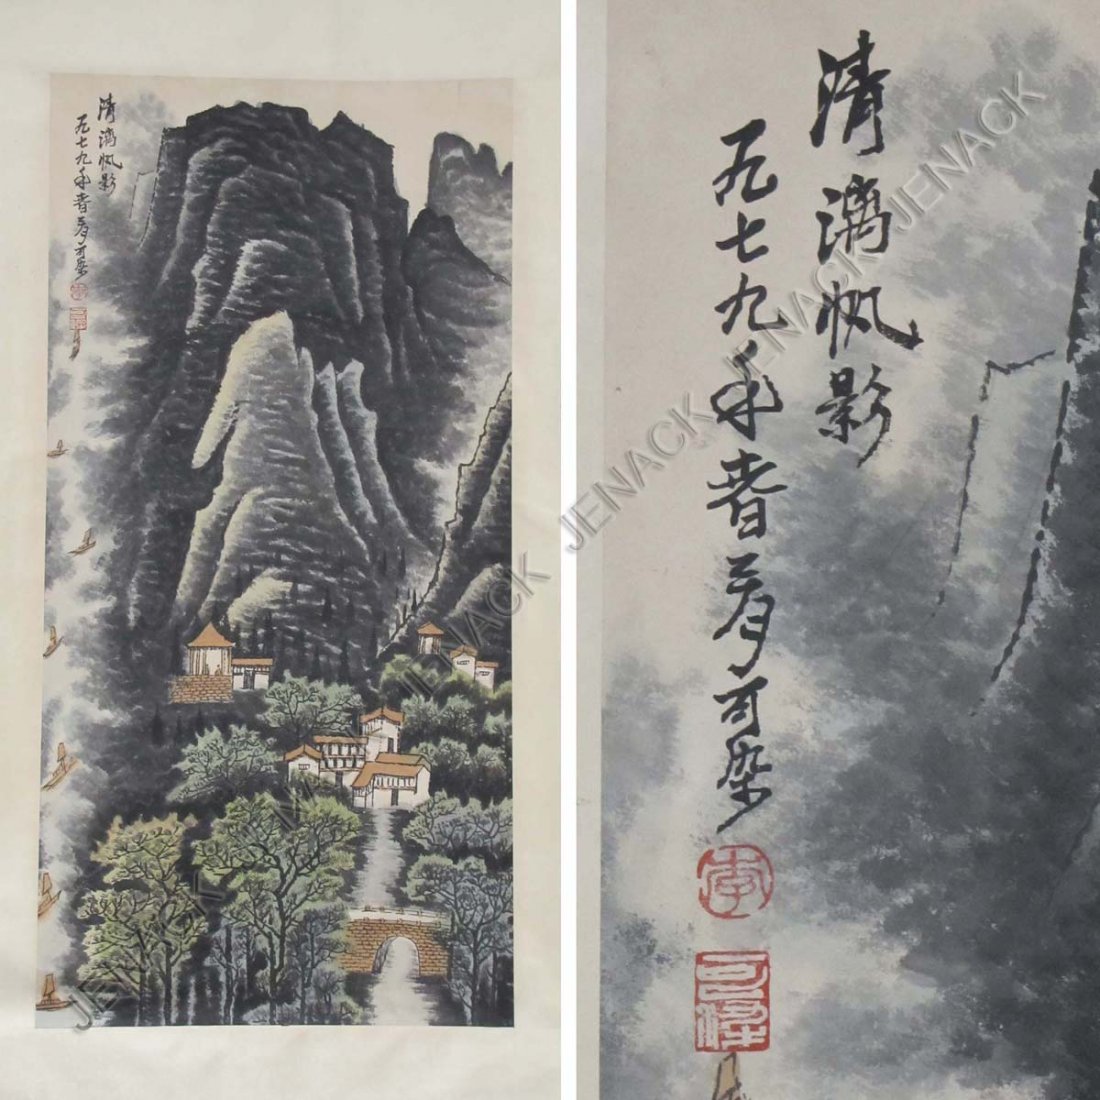 清漓帆影
一九七九年春
可染
李
可染
清漓帆影
一九七九年春
可染
李
可染
JENACK
JENACK
JENACK
JENACK
JENACK
JENACK